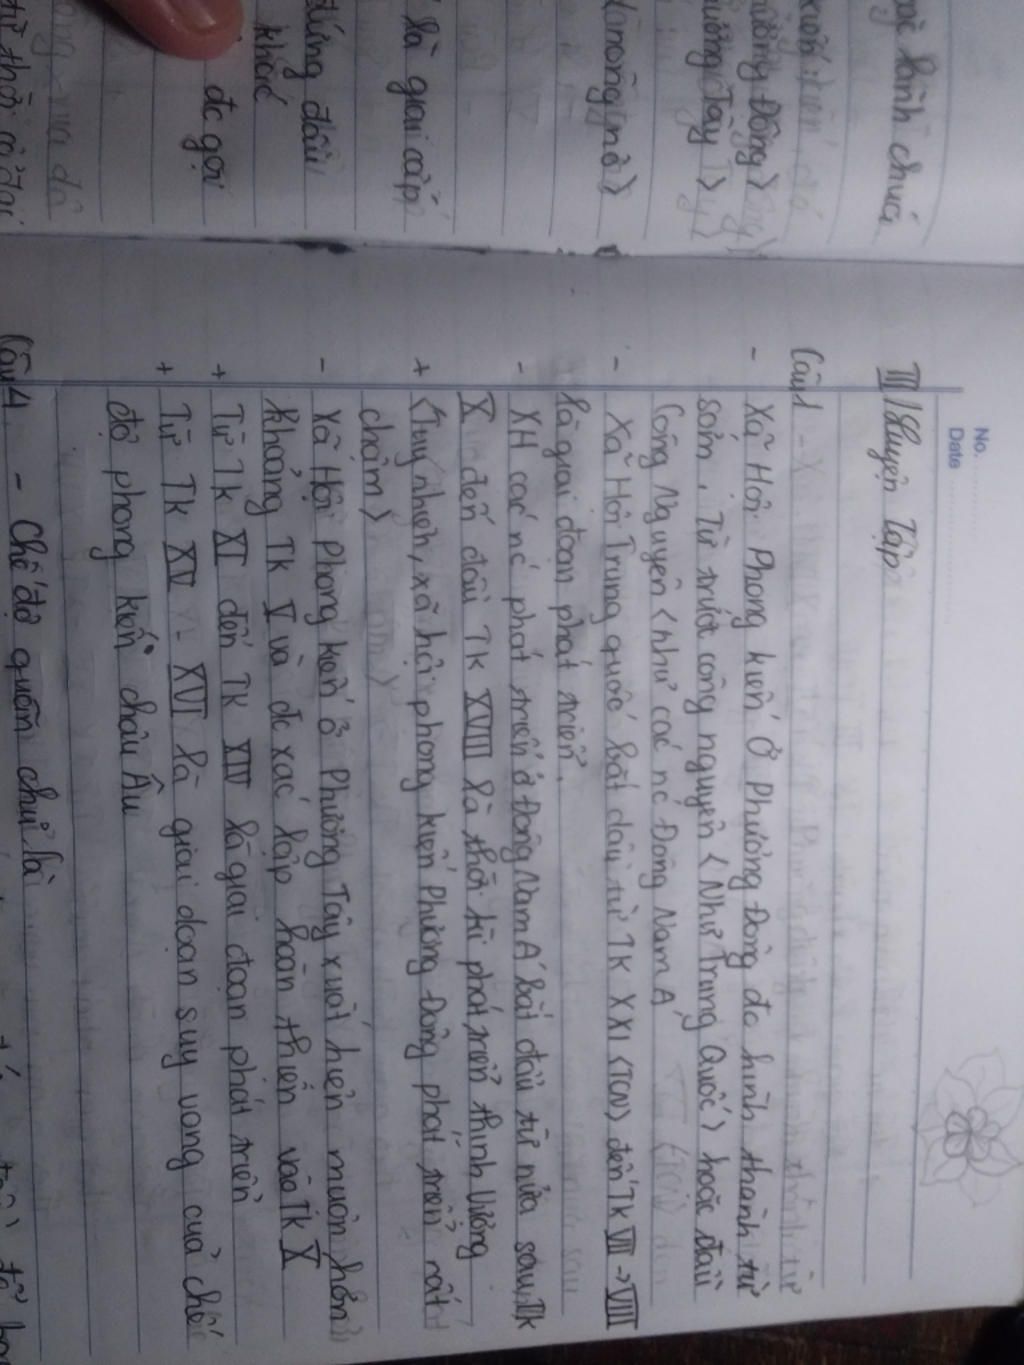 No.
Date
III/ Luyện Tập
Câu 1 - X
- Xã Hội Phong kiến Ở Phương Đông đc hình thành từ
sớm, Từ trước công nguyên <Như Trung Quốc> hoặc đầu
Công Nguyên <như các nc Đông Nam Á
- Xã Hội Trung quốc bắt đầu từ TK XXI (TCN) đến TK VII -> VIII
là giai đoạn phát triển.
- XH các nc phát triển ở Đông Nam Á bắt đầu từ nửa sau TK
X đến đầu TK XVIII là thời kì phát triển thịnh vượng
+ <Tuy nhiên, xã hội phong kiến Phương Đông phát triển rất
chậm>
- Xã Hội Phong kiến ở Phương Tây xuất hiện muộn hơn
khoảng TK V và đc xác lập hoàn thiện vào TK X
+ Từ TK XI đến TK XIV là giai đoạn phát triển
+ Từ TK XV - XVI là giai đoạn suy vong của chế
độ phong kiến châu Âu
Câu 4 - Chế độ quân chủ là
lãnh chúa
Đông>
Tây>
là giai cấp
đứng đầu
khác
đc gọi
từ thời cổ đại